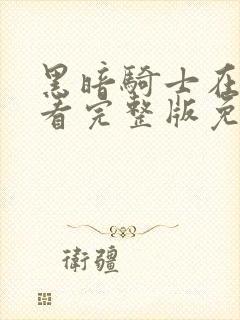 黑暗騎士在
看完整版免
衛疆